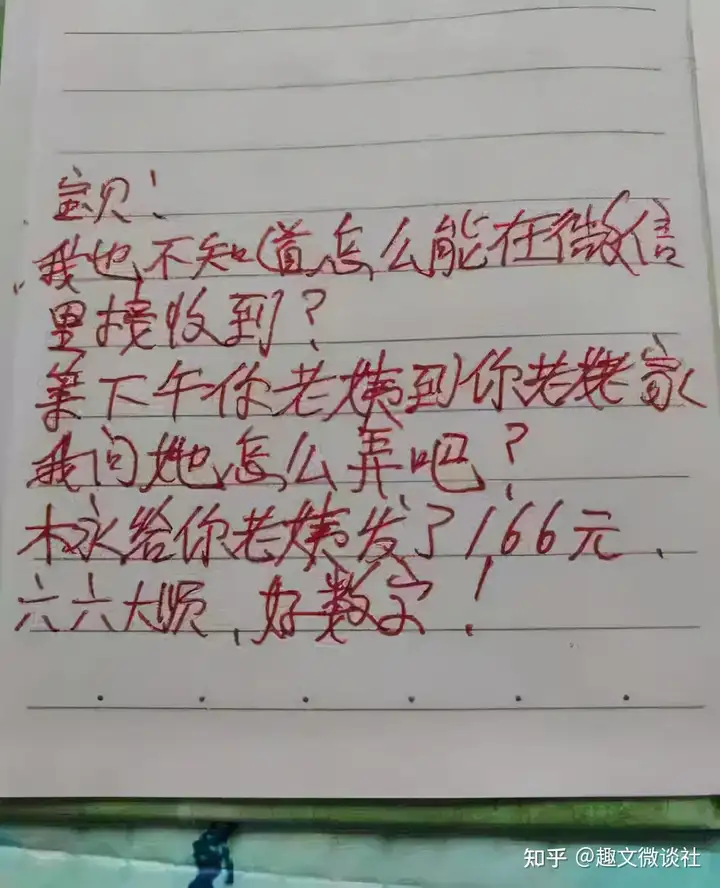 宝贝!
我也不知道怎么能在微信
里接收到?
等下午你老姨到你老姥家
我问她怎么弄吧?
木永给你老姨发了166元、
六六大顺,好数字!
知乎 @趣文微谈社